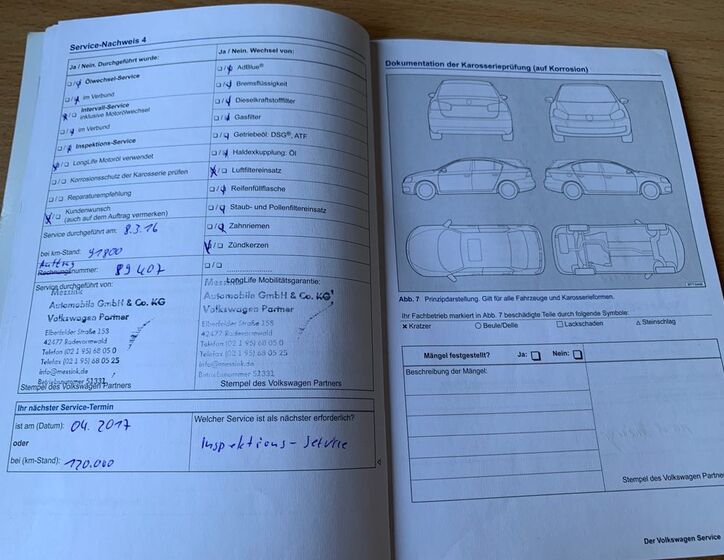 Service-Nachweis 4
Ja / Nein. Durchgeführt wurde:
Ölwechsel-Service
im Verbund
Intervall-Service
inklusive Motorölwechsel
im Verbund
Inspektions-Service
LongLife Motoröl verwendet
Korrosionsschutz der Karosserie prüfen
Reparaturempfehlung
Kundenwunsch
(auch auf dem Auftrag vermerken)
Service durchgeführt am: 8.3.16
bei km-Stand: 91800
Auftrag
Rechnungsnummer: 89407
Service durchgeführt von:
Messink
Automobile GmbH & Co. KG
Volkswagen Partner
Elberfelder Straße 158
42477 Radevormwald
Telefon (02 1 95) 68 05 0
Telefax (02 1 95) 68 05 25
info@messink.de
Betriebsnummer 51331
Stempel des Volkswagen Partners
Ja / Nein. Wechsel von:
AdBlue®
Bremsflüssigkeit
Dieselkraftstofffilter
Gasfilter
Getriebeöl: DSG®, ATF
Haldexkupplung: Öl
Luftfiltereinsatz
Reifenfüllflasche
Staub- und Pollenfiltereinsatz
Zahnriemen
Zündkerzen
LongLife Mobilitätsgarantie:
Messink
Automobile GmbH & Co. KG
Volkswagen Partner
Elberfelder Straße 158
42477 Radevormwald
Telefon (02 1 95) 68 05 0
Telefax (02 1 95) 68 05 25
info@messink.de
Betriebsnummer 51331
Stempel des Volkswagen Partners
Ihr nächster Service-Termin
ist am (Datum): 04.2017
oder
bei (km-Stand): 120.000
Welcher Service ist als nächster erforderlich?
Inspektions-Service
Dokumentation der Karosserieprüfung (auf Korrosion)
Abb. 7 Prinzipdarstellung. Gilt für alle Fahrzeuge und Karosserieformen.
Ihr Fachbetrieb markiert in Abb. 7 beschädigte Teile durch folgende Symbole:
× Kratzer ○ Beule/Delle □ Lackschaden △ Steinschlag
Mängel festgestellt? Ja: Nein:
Beschreibung der Mängel:
Stempel des Volkswagen Partners
Der Volkswagen Service